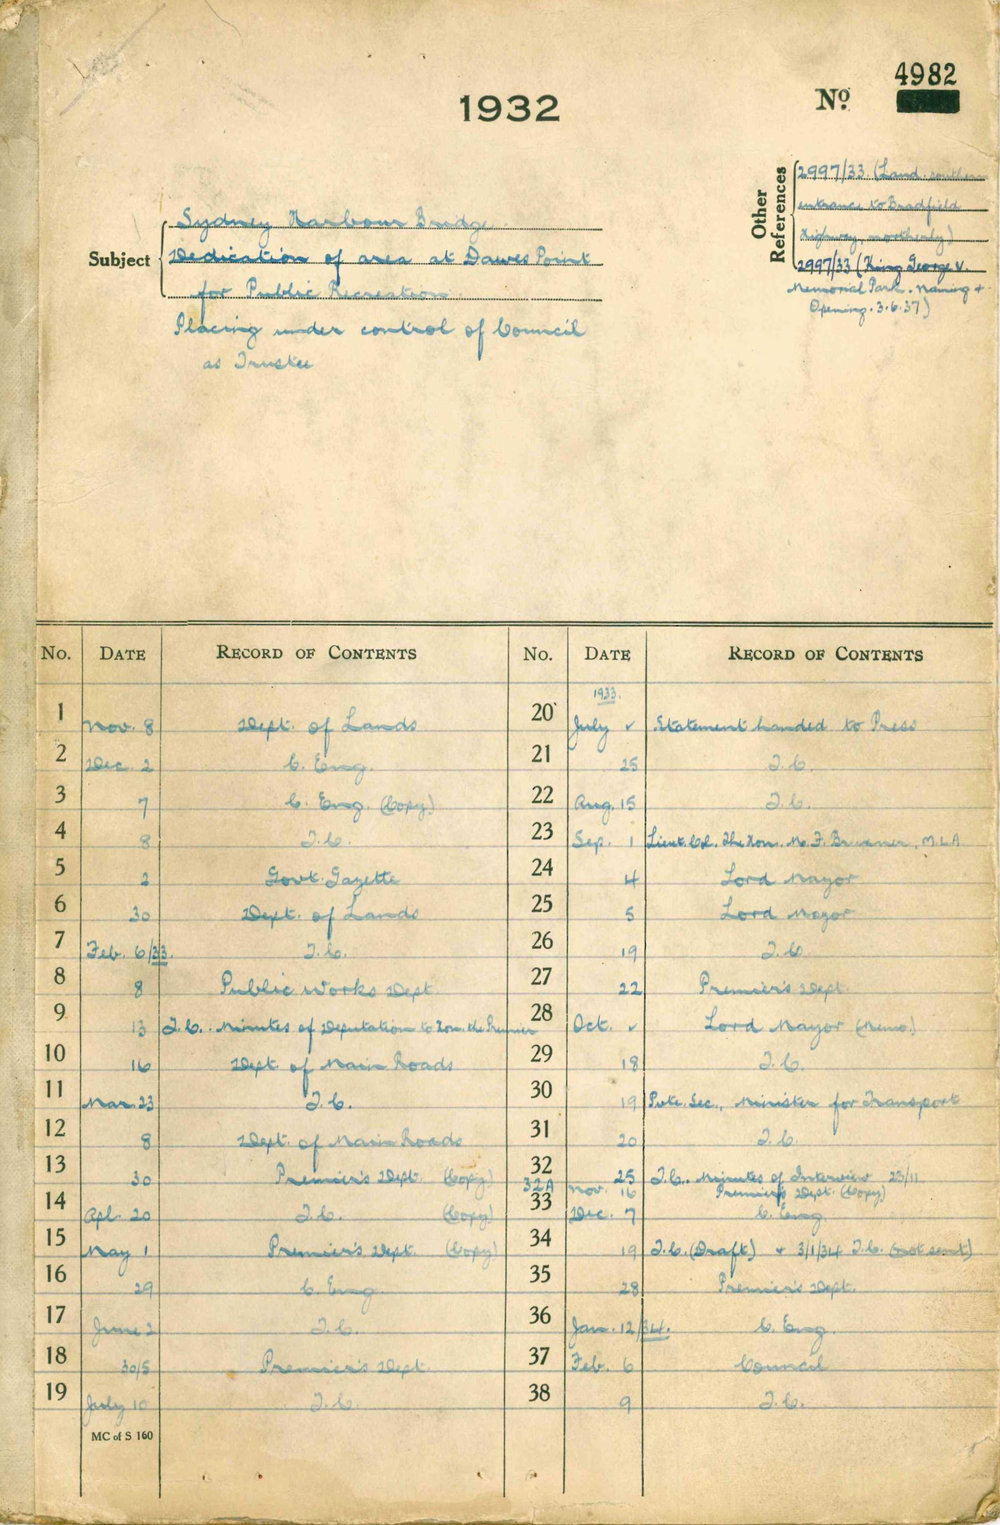 4982
1932
No.
Other References
2997/33 (Land southern
entrance to Bradfield
Highway, northerly)
2997/33 (King George V.
Memorial Park. Naming +
Opening. 3.6.37)
Subject
Sydney Harbour Bridge
Dedication of area at Dawes Point
for Public Recreation
Placing under control of Council
as Trustee
No. DATE RECORD OF CONTENTS
1 Nov. 8 Dept. of Lands
2 Dec. 2 C. Eng.
3 7 C. Eng. (Copy)
4 8 T.C.
5 2 Govt. Gazette
6 30 Dept. of Lands
7 Feb. 6/33. T.C.
8 8 Public Works Dept
9 13 T.C. Minutes of Deputation to Hon. the Premier
10 16 Dept of Main Roads
11 Mar. 23 T.C.
12 8 Dept. of Main Roads
13 30 Premier's Dept. (Copy)
14 Apl. 20 T.C. (Copy)
15 May 1 Premier's Dept. (Copy)
16 29 C. Eng.
17 June 2 T.C.
18 30/5 Premier's Dept.
19 July 10 T.C.
MC of S 160
No. DATE RECORD OF CONTENTS
1933.
20 July ✓ Statement handed to Press
21 25 T.C.
22 Aug. 15 T.C.
23 Sep. 1 Lieut. Col. The Hon. M. F. Bruxner, M.L.A
24 4 Lord Mayor
25 5 Lord Mayor
26 19 T.C.
27 22 Premier's Dept.
28 Oct. ✓ Lord Mayor (Memo.)
29 18 T.C.
30 19 Pvte. Sec., Minister for Transport
31 20 T.C.
32 25 T.C. Minutes of Interview 23/11
32A Nov. 16 Premier's Dept. (Copy)
33 Dec. 7 C. Eng
34 19 T.C. (Draft) + 3/1/34 T.C. (not sent)
35 28 Premier's Dept.
36 Jan. 12/34. C. Eng.
37 Feb. 6 Council
38 9 T.C.